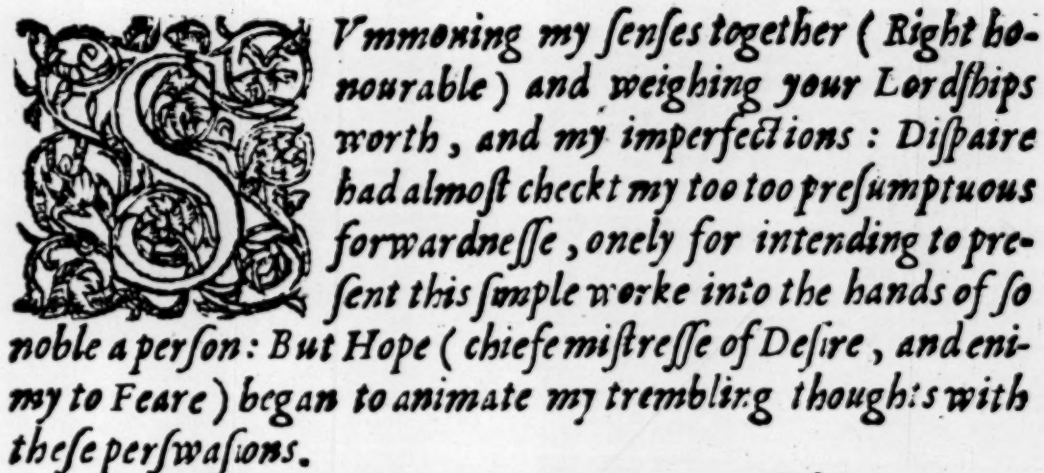 SVmmoning my ſenſes together ( Right ho-
nourable ) and weighing your Lordſhips
worth , and my imperfections : Diſpaire
had almoſt checkt my too too preſumptuous
forwardneſſe , onely for intending to pre-
ſent this ſimple worke into the hands of ſo
noble a perſon : But Hope ( chiefe miſtreſſe of Deſire , and eni-
my to Feare ) began to animate my trembling thoughts with
theſe perſwaſions.